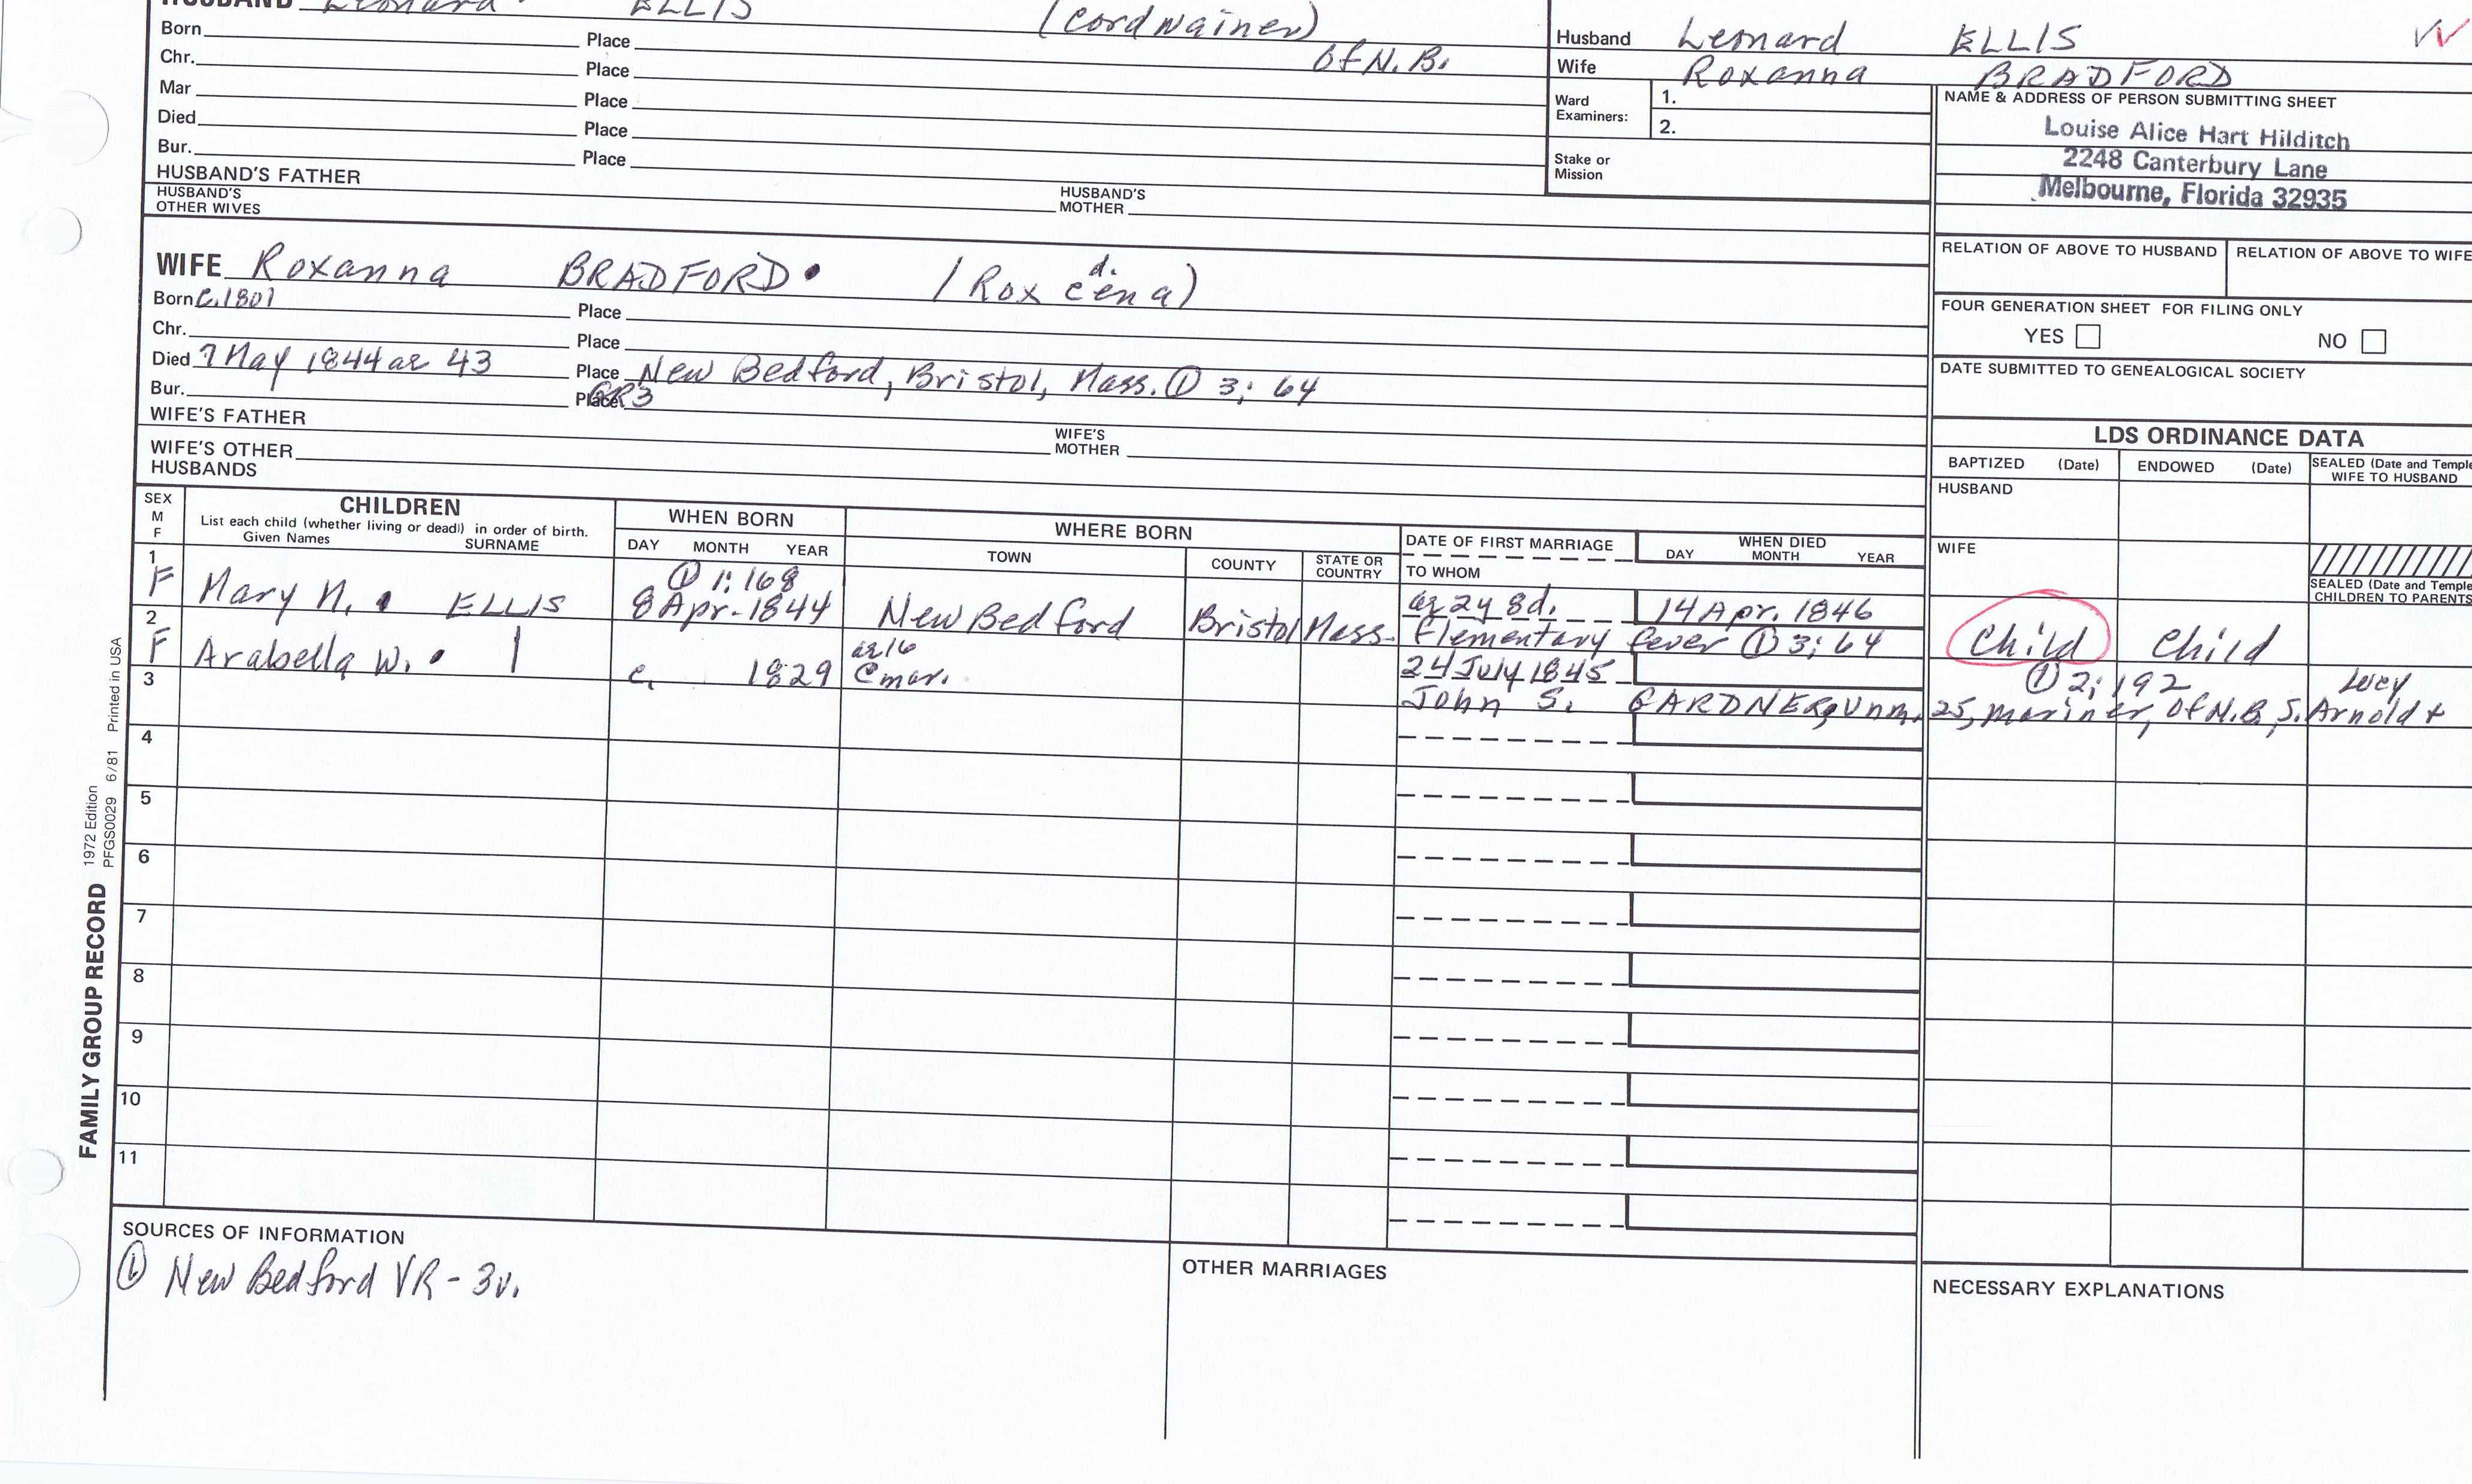 HUSBAND Leonard ELLIS (Cordwainer)
of N.B.
Born Place
Chr. Place
Mar Place
Died Place
Bur. Place
HUSBAND'S FATHER
HUSBAND'S MOTHER
HUSBAND'S OTHER WIVES
Husband Leonard ELLIS
Wife Roxanna BRADFORD
Ward Examiners: 1.
2.
Stake or Mission
NAME & ADDRESS OF PERSON SUBMITTING SHEET
Louise Alice Hart Hilditch
2248 Canterbury Lane
Melbourne, Florida 32935
RELATION OF ABOVE TO HUSBAND RELATION OF ABOVE TO WIFE
FOUR GENERATION SHEET FOR FILING ONLY
YES NO
DATE SUBMITTED TO GENEALOGICAL SOCIETY
WIFE Roxanna BRADFORD. (Rox cena)
d.
Born C.1801 Place
Chr. Place
Died 7 May 1844 ae 43 Place New Bedford, Bristol, Mass. ① 3; 64
Bur. Place GR3
WIFE'S FATHER
WIFE'S MOTHER
WIFE'S OTHER HUSBANDS
LDS ORDINANCE DATA
BAPTIZED (Date) ENDOWED (Date) SEALED (Date and Temple
WIFE TO HUSBAND
HUSBAND
WIFE
SEALED (Date and Temple
CHILDREN TO PARENTS
SEX
M
F
CHILDREN
List each child (whether living or dead) in order of birth.
Given Names SURNAME
WHEN BORN
DAY MONTH YEAR
WHERE BORN
TOWN COUNTY STATE OR COUNTRY
DATE OF FIRST MARRIAGE
TO WHOM
WHEN DIED
DAY MONTH YEAR
① 1; 168
1 F Mary N. ELLIS 8 Apr. 1844 New Bedford Bristol Mass. ae 2y 8d. 14 Apr. 1846
Elementary fever ① 3; 64 Child Child
2 F Arabella W. | c. 1829 ae 16 @ mar. 24 July 1845 ① 2; 192 Lucy
John S. GARDNER, unm. 25, mariner, of N.B., S. Arnold +
3
4
5
6
7
8
9
10
11
SOURCES OF INFORMATION
① New Bedford VR - 3v.
OTHER MARRIAGES
NECESSARY EXPLANATIONS
FAMILY GROUP RECORD 1972 Edition
PFGS0029 6/81 Printed in USA